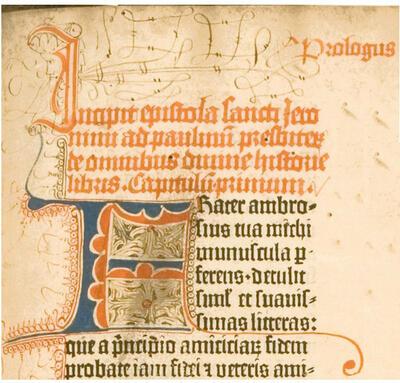 Prologus
Incipit epistola sancti Jero
nimi ad paulinū presbiteꝝ
de omnibus diuine historie
libris. Capitulū primum.
Frater ambro-
sius tua michi
munuscula ꝑ
ferens · detulit
simĺ et suauis-
simas litteras:
que a p̄ncipio amiciciaꝝ fidem
probate iam fidei ⁊ veteris ami-